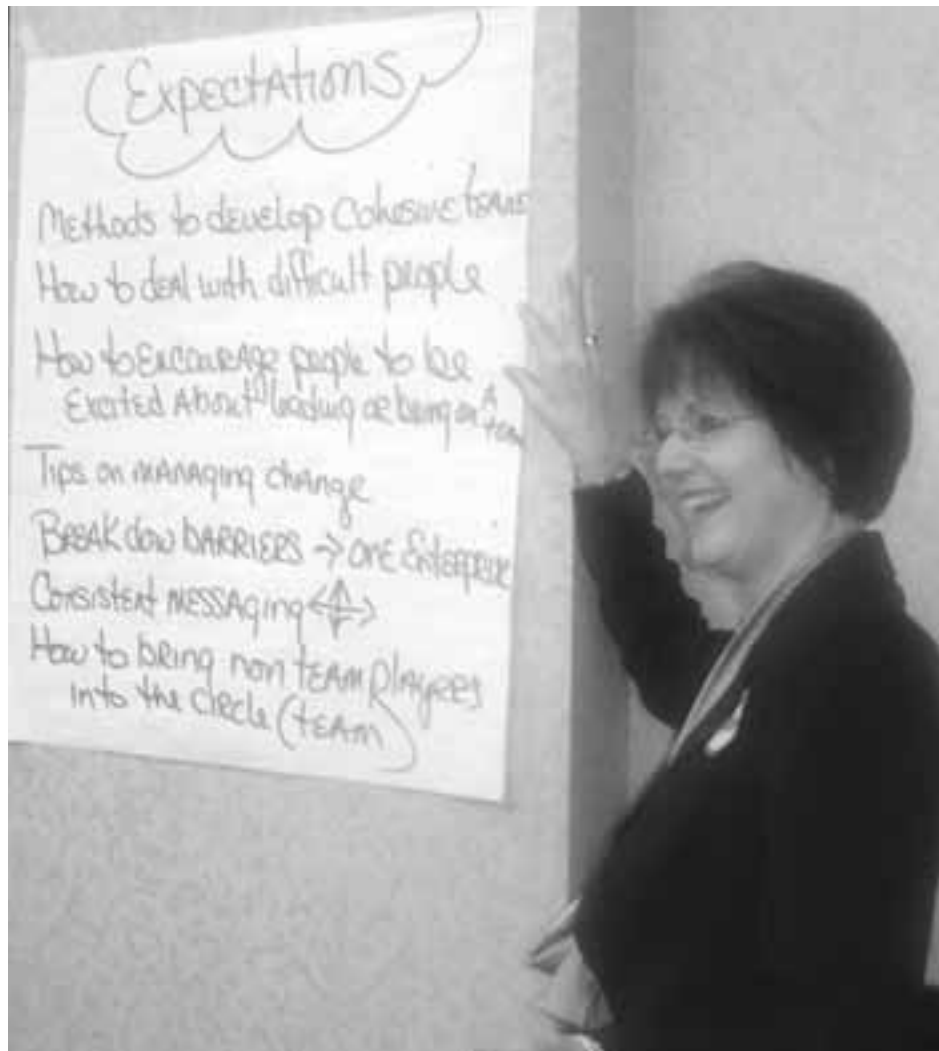 Expectations
Methods to develop cohesive teams
How to deal with difficult people
How to Encourage people to be
Excited About leading or being on A
team
Tips on MANAging change
BREAK dow BARRIERS → one Enterprise
Consistent MESSAging
How to bring non tEAM players
into the circle (tEAM)